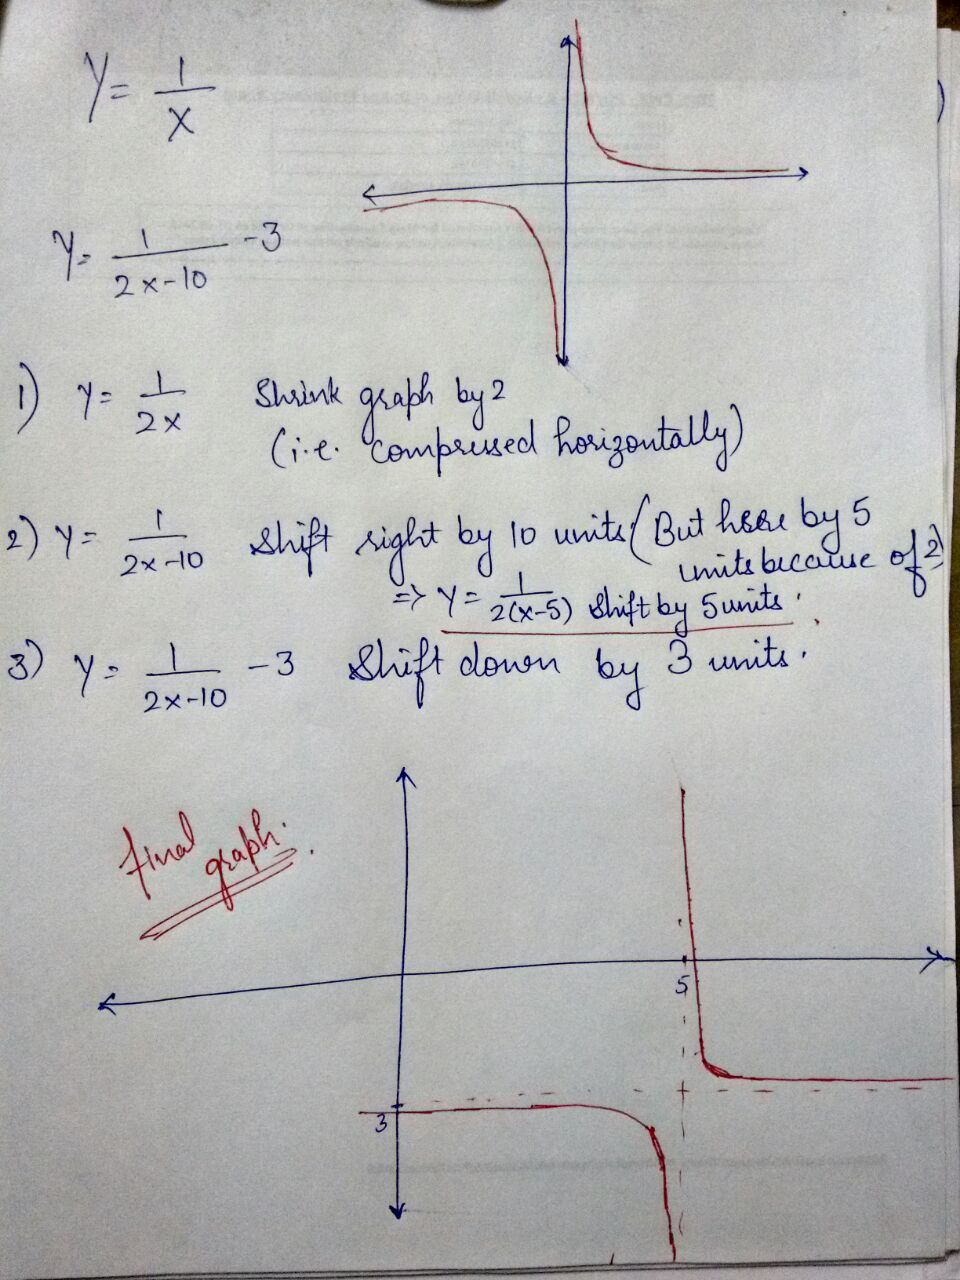 y = 1/x
y = 1/(2x-10) -3
1) y = 1/2x Shrink graph by 2
(i.e. compressed horizontally)
2) y = 1/(2x-10) Shift right by 10 units (But here by 5
units because of 2)
=> y = 1/2(x-5) Shift by 5 units.
3) y = 1/(2x-10) -3 Shift down by 3 units.
final
graph.
5
3